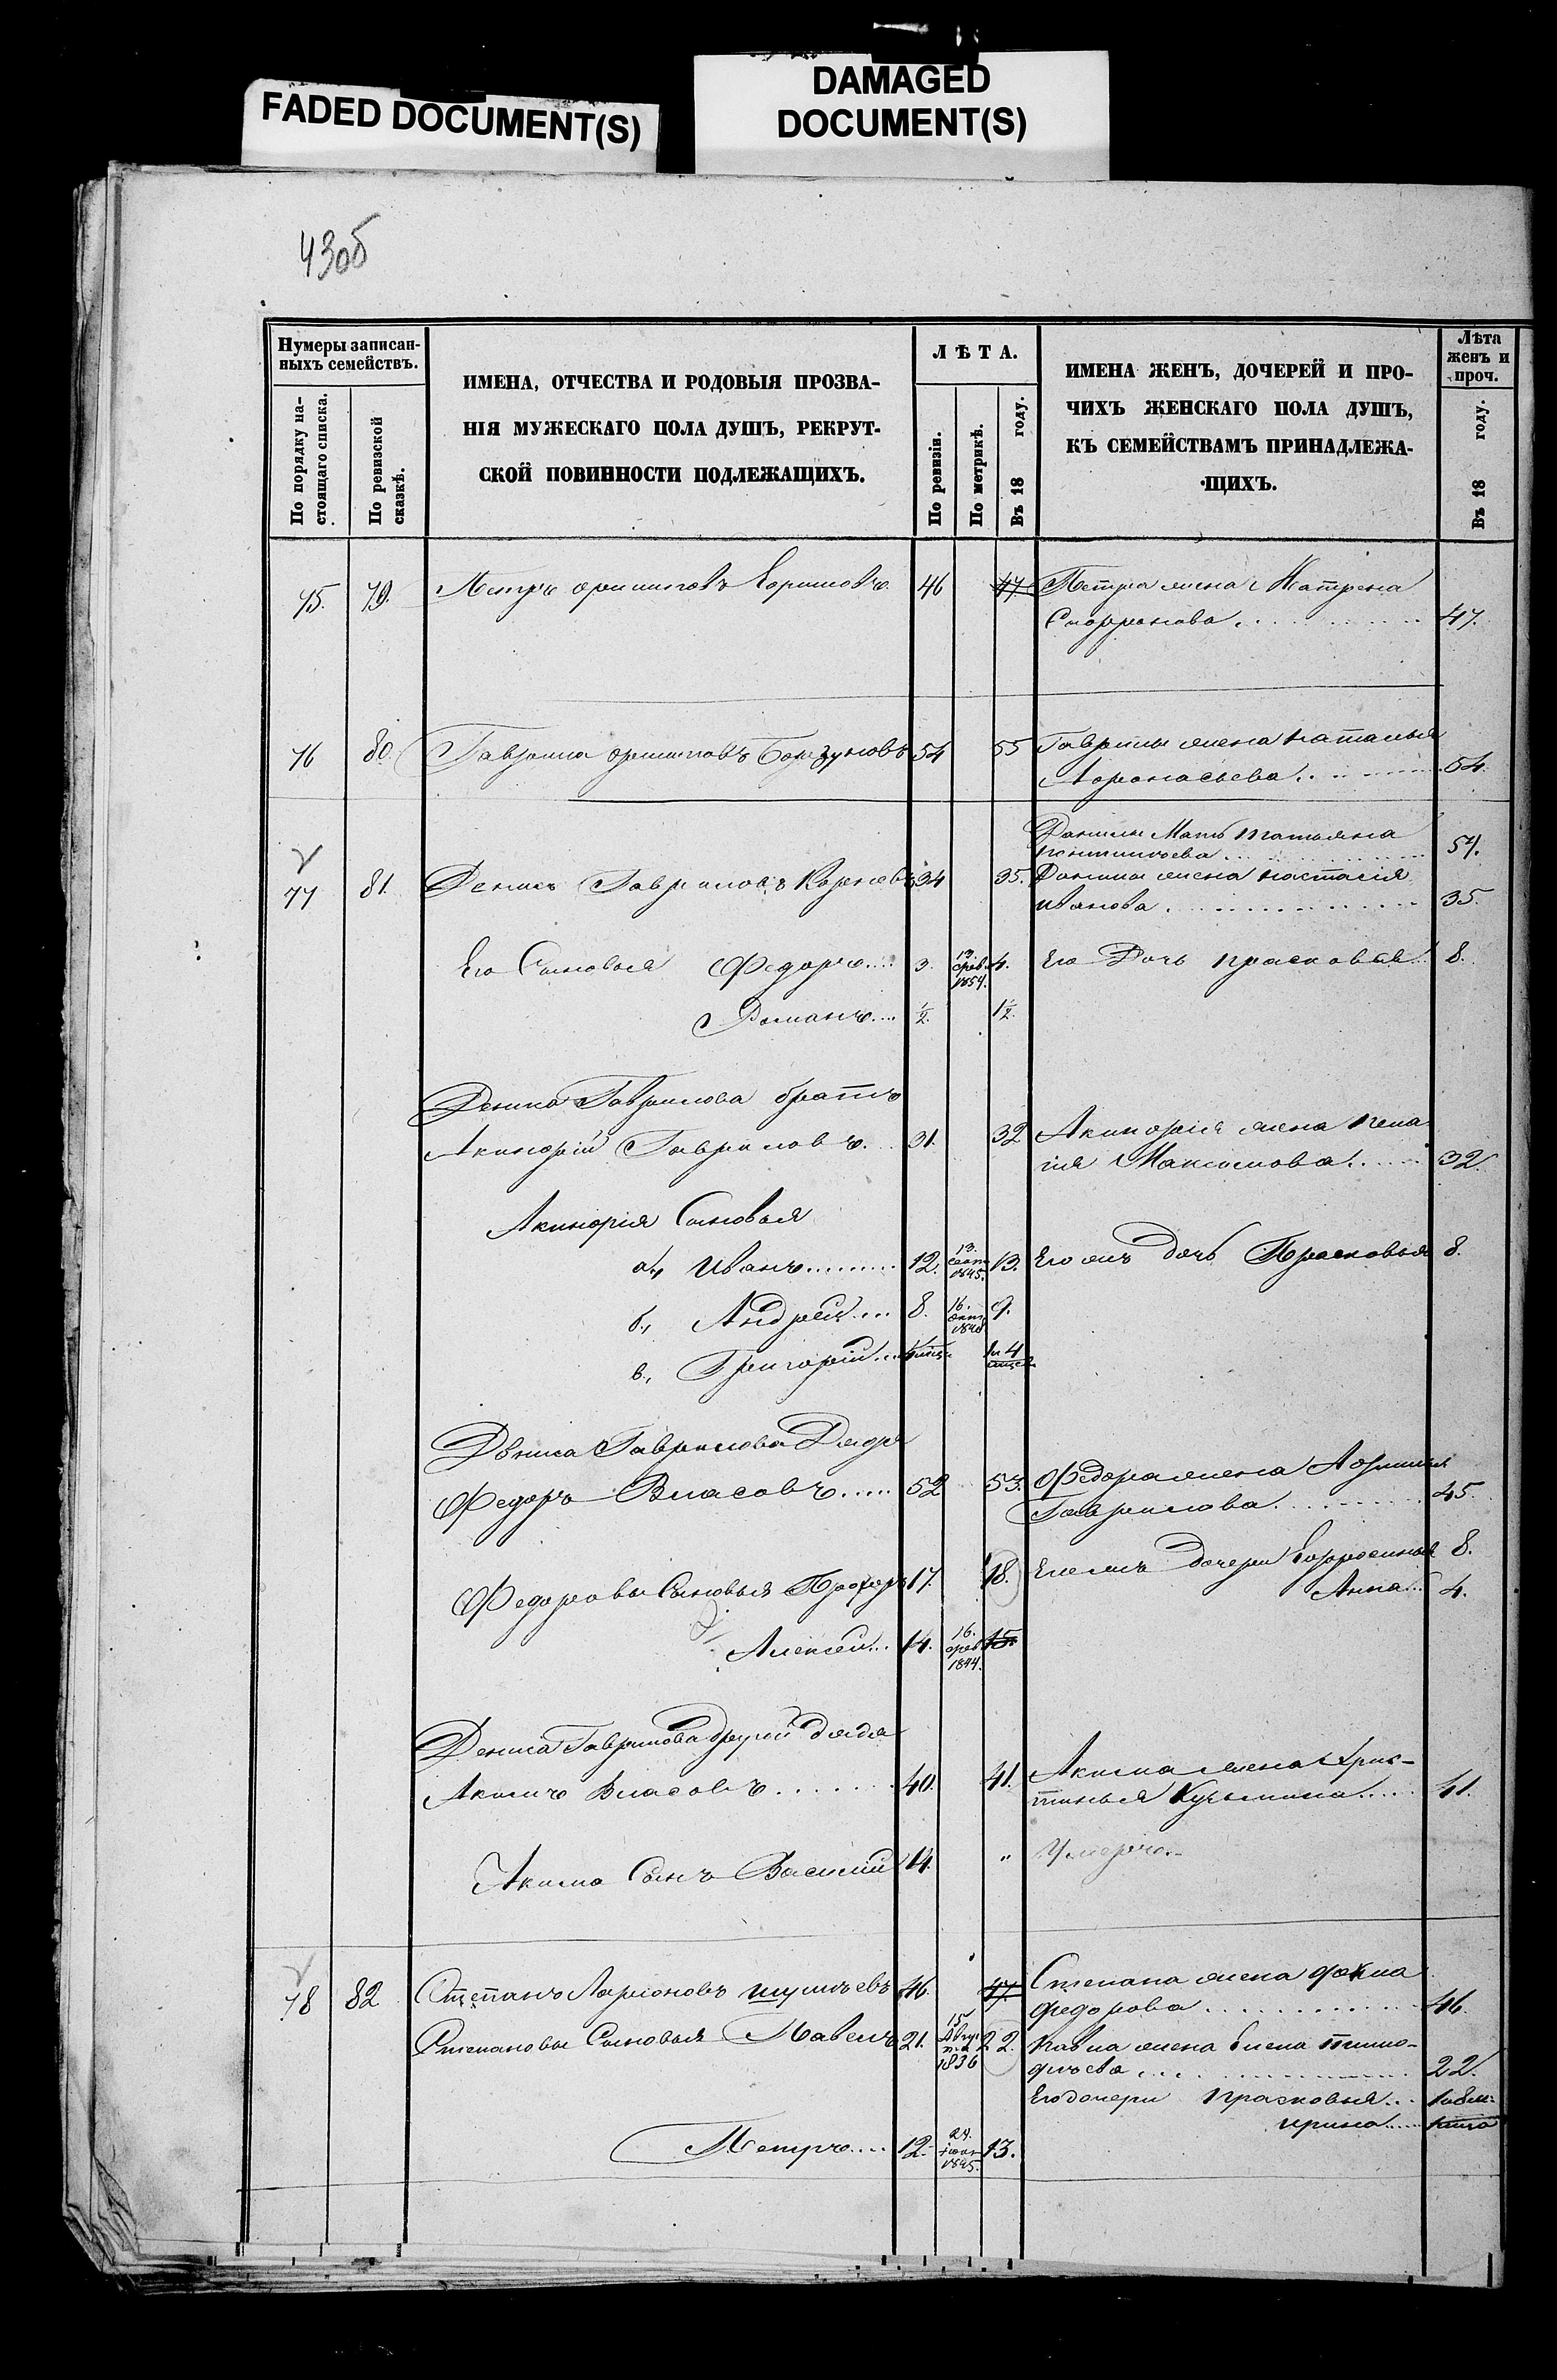 FADED DOCUMENT(S)
DAMAGED
DOCUMENT(S)
43об
Нумеры записан-
ныхъ семействъ.
По порядку на-
стоящаго списка.
По ревизской
сказкѣ.
ИМЕНА, ОТЧЕСТВА И РОДОВЫЯ ПРОЗВА-
НІЯ МУЖЕСКАГО ПОЛА ДУШЪ, РЕКРУТ-
СКОЙ ПОВИННОСТИ ПОДЛЕЖАЩИХЪ.
ЛѢТА.
По ревизіи.
По метрикѣ.
Въ 18 году.
ИМЕНА ЖЕНЪ, ДОЧЕРЕЙ И ПРО-
ЧИХЪ ЖЕНСКАГО ПОЛА ДУШЪ,
КЪ СЕМЕЙСТВАМЪ ПРИНАДЛЕЖА-
ЩИХЪ.
Лѣта
женъ и
проч.
Въ 18 году.
75. 79. Петръ 46 47 Петра жена Матрена
Софронова 47.
76 80. Гаврила 54 55 Гаврилы жена Наталья
Афонасьева 54.
Мать Татьяна
57.
77 81. Денисъ Гавриловъ Корневъ 34 35. жена Настасія
Иванова 35.
Его Сыновья Федоръ 3. 13. фев. 1854. 4. Его Дочь Прасковья 8.
Романъ 1/2. 1 1/2.
Дениса Гаврилова братъ
Акинфій Гавриловъ 31. 32 Акинфія жена Пела
гія Максимова 32
Акинфія Сыновья
а., Иванъ 12. 13. сент. 1845. 13. Его жъ дочь Прасковья 8.
б., Андрей 8. 16. окт. 1848 9.
в., Григорій 4 мѣц. 1 и 4 мѣся.
Дениса Гаврилова Дядя
Федоръ Власовъ 52 53. Федора жена Афимья
Гаврилова 45.
Федоровы Сыновья Прохоръ 17. 18. Его жъ дочери Ефросинья 8.
Анна 4.
Алексей 14. 16. фев. 1844. 15.
Дениса Гаврилова другой дядя
Акимъ Власовъ 40. 41. Акима жена Хрис-
тинья Кузьмина 41.
Акима Сынъ Василій 14. " Умеръ
78 82 Степанъ Ларіоновъ 46. 47. Степана жена Фекла
Федорова 46.
Степановы Сыновья Павелъ 21. 15 Авгус та 1836 22. Павла жена Елена Тимо-
фѣева 22.
Его дочери Прасковья
Ирина
Петръ 12. 24. 1845. 13.